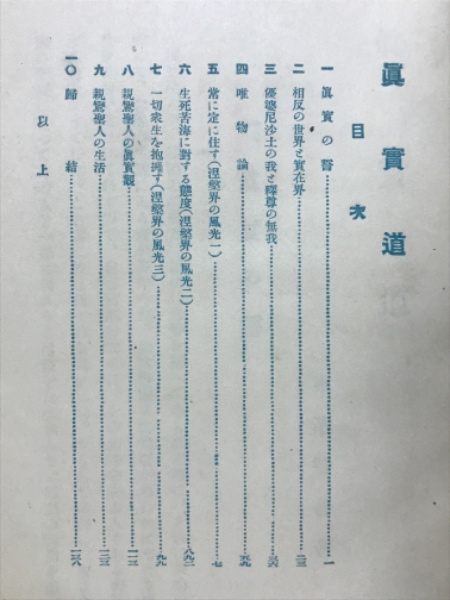 眞實道
目次
一 眞實の誓 一
二 相反の世界と實在界 二三
三 優婆尼沙土の我と釋尊の無我 三六
四 唯物論 五九
五 常に定に住す(涅槃界の風光一) 七
六 生死苦海に對する態度(涅槃界の風光二) 八二
七 一切衆生を抱擁す(涅槃界の風光三) 九九
八 親鸞聖人の眞實觀 一一三
九 親鸞聖人の生活 一二三
一〇 歸結 一三八
以上